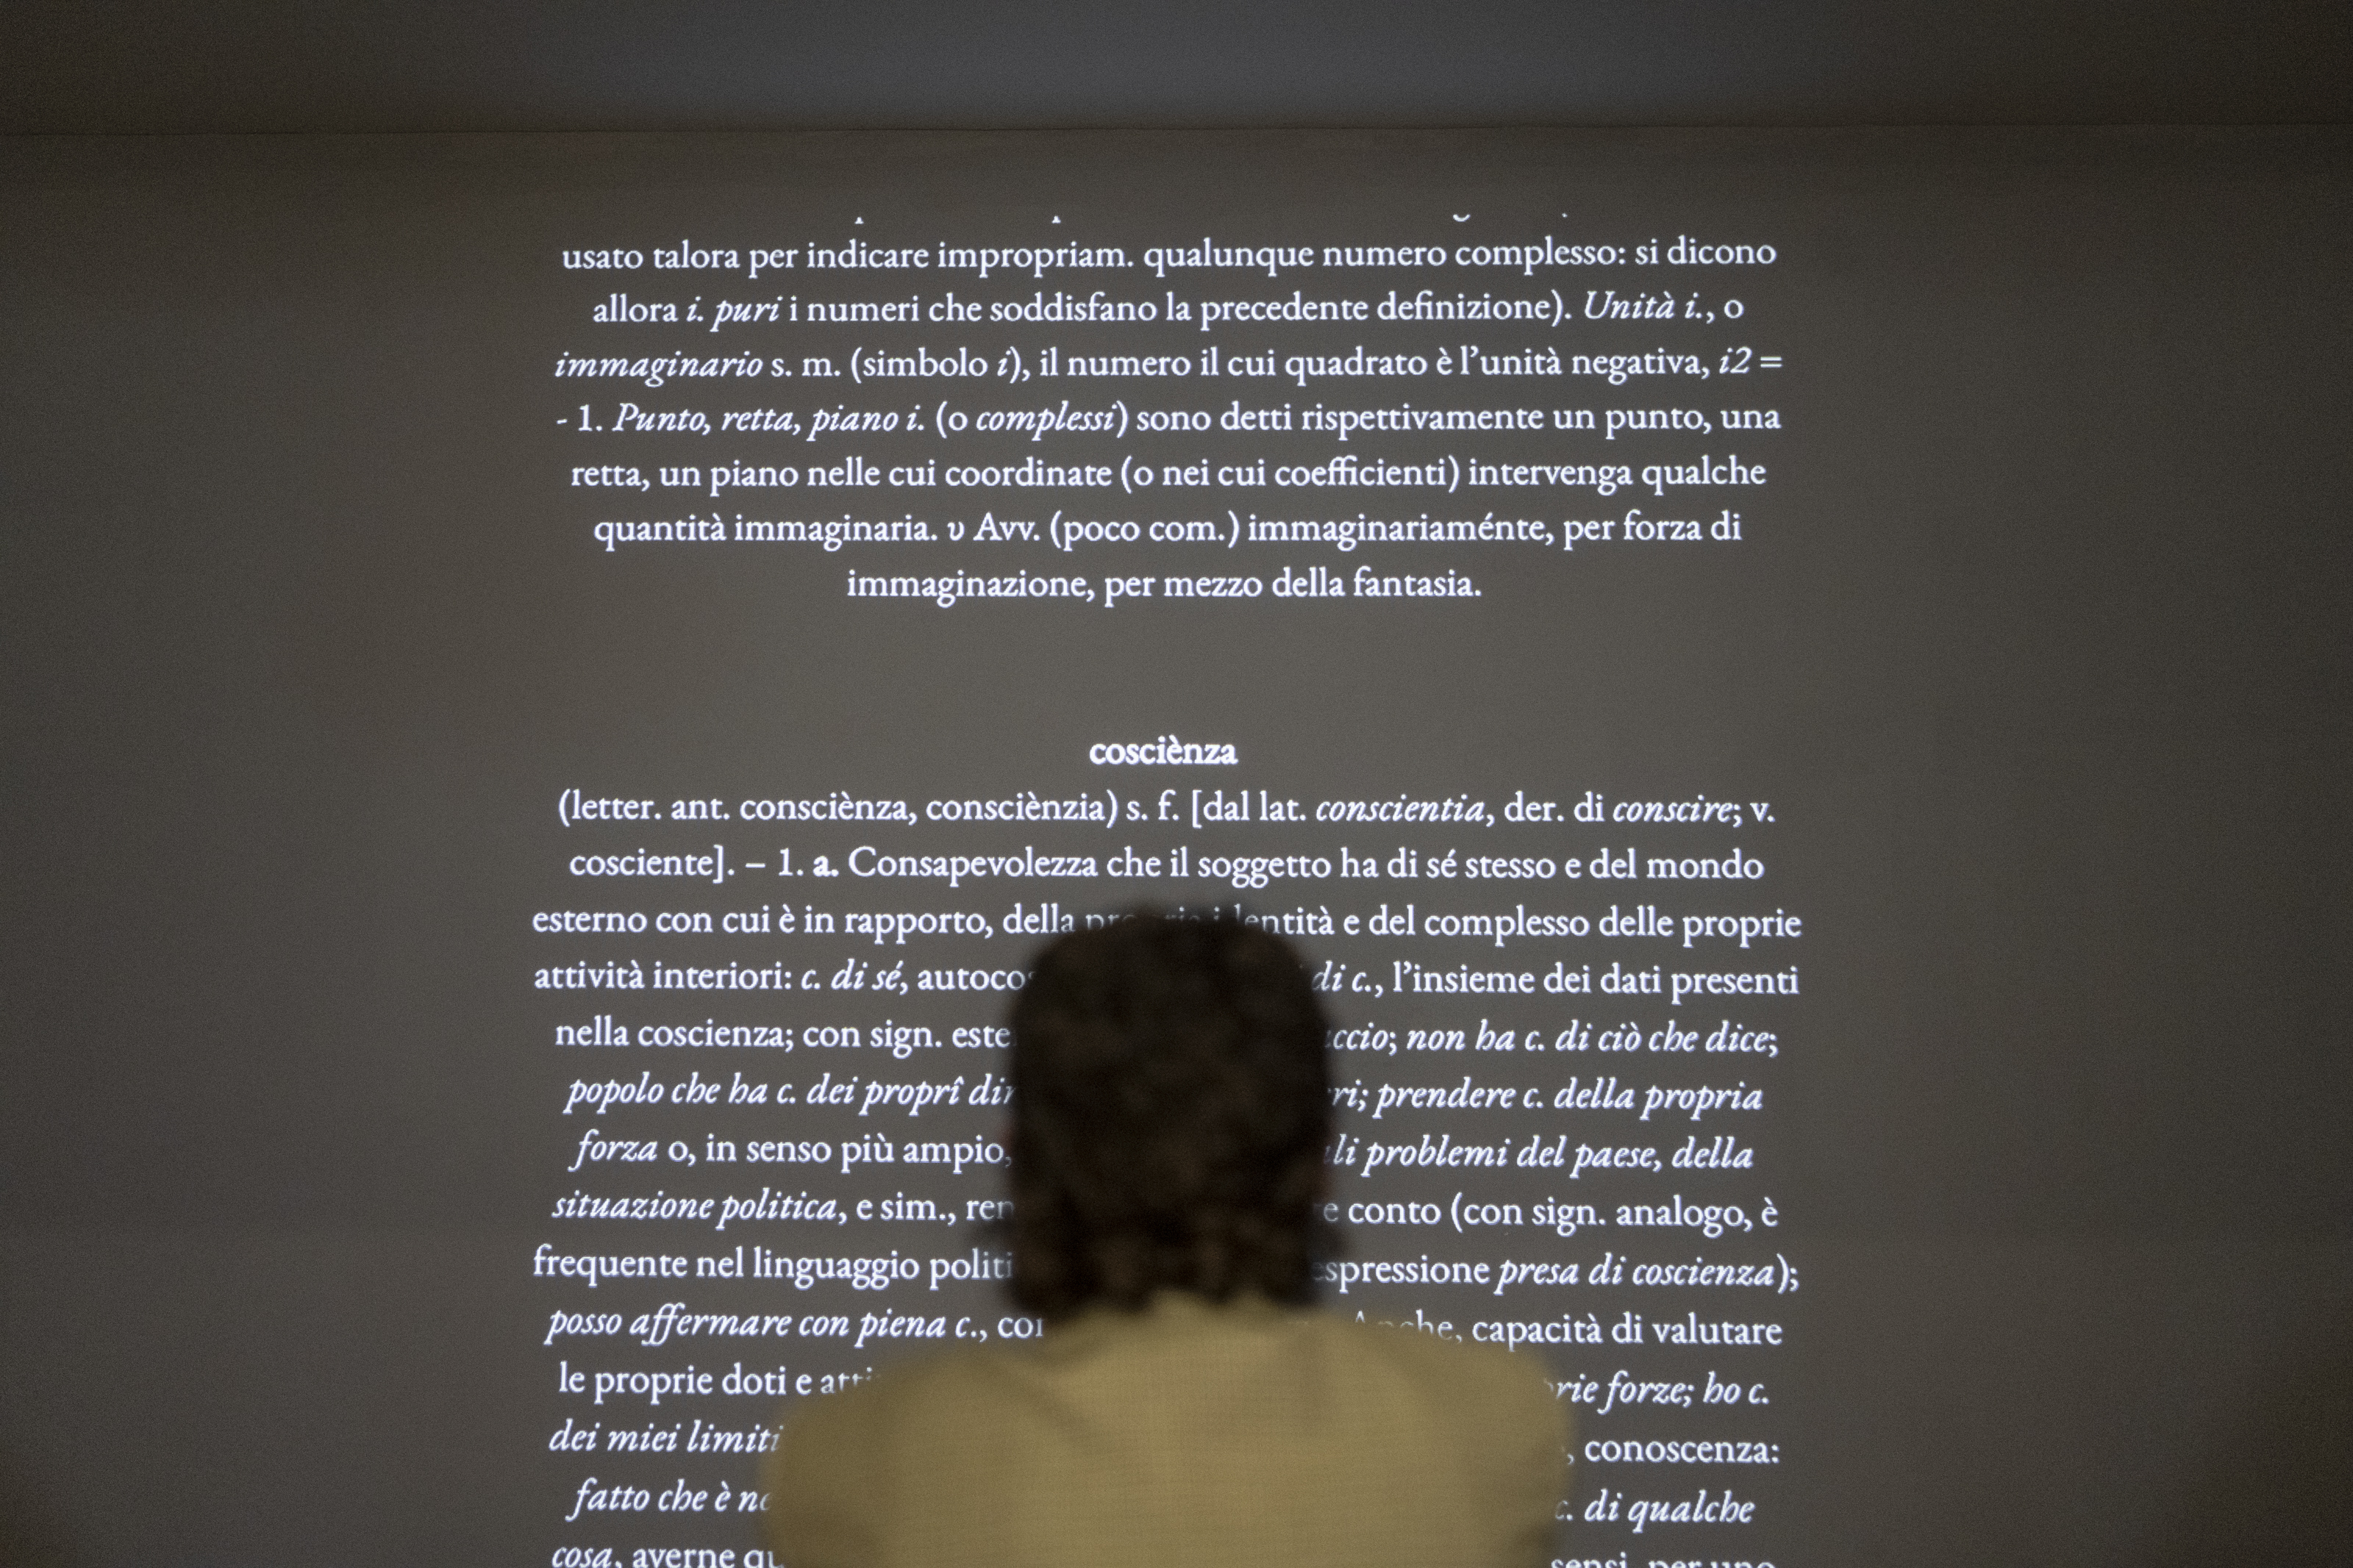 usato talora per indicare impropriam. qualunque numero complesso: si dicono
allora i. puri i numeri che soddisfano la precedente definizione). Unità i., o
immaginario s. m. (simbolo i), il numero il cui quadrato è l’unità negativa, i2 =
- 1. Punto, retta, piano i. (o complessi) sono detti rispettivamente un punto, una
retta, un piano nelle cui coordinate (o nei cui coefficienti) intervenga qualche
quantità immaginaria. υ Avv. (poco com.) immaginariaménte, per forza di
immaginazione, per mezzo della fantasia.
cosciènza
(letter. ant. consciènza, consciènzia) s. f. [dal lat. conscientia, der. di conscire; v.
cosciente]. – 1. a. Consapevolezza che il soggetto ha di sé stesso e del mondo
esterno con cui è in rapporto, della e del complesso delle proprie
attività interiori: c. di sé, di c., l’insieme dei dati presenti
nella coscienza; con sign. non ha c. di ciò che dice;
popolo che ha c. dei proprî prendere c. della propria
forza o, in senso più ampio, problemi del paese, della
situazione politica, e sim., conto (con sign. analogo, è
frequente nel linguaggio presa di coscienza);
posso affermare con piena c., capacità di valutare
le proprie doti e forze; ho c.
dei miei limiti conoscenza:
fatto che è c. di qualche
cosa, averne sensi, per uno